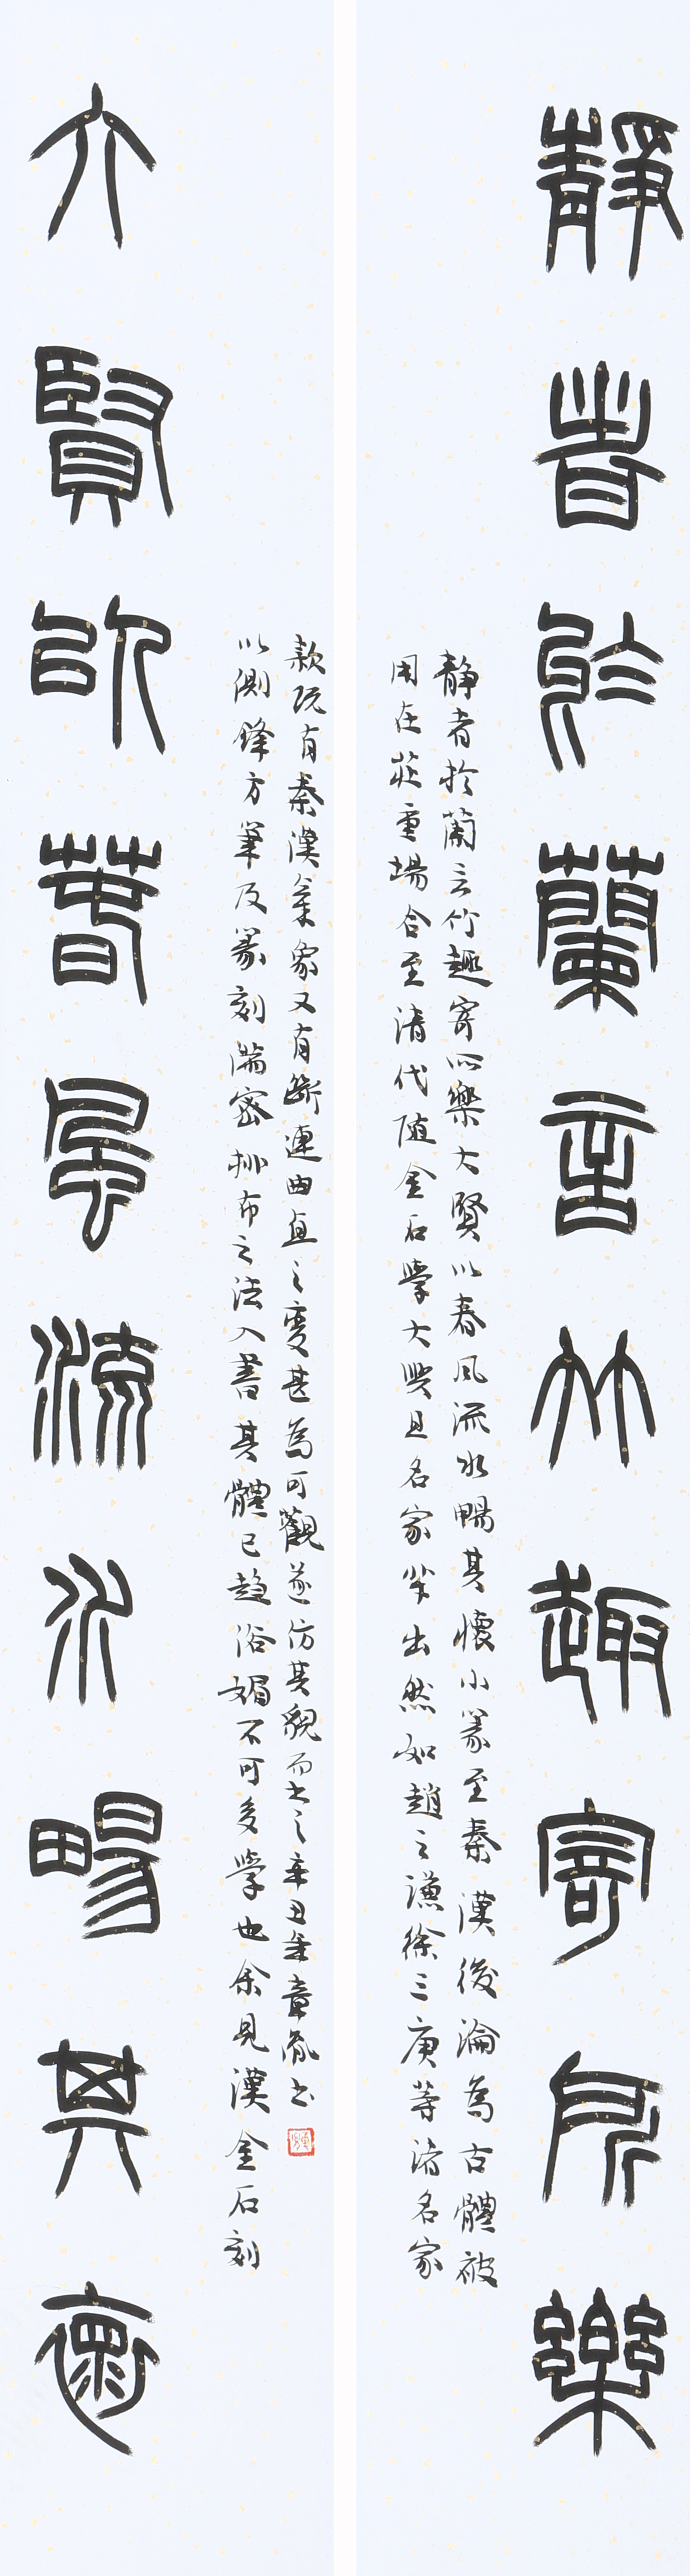 靜者於蘭言竹趣寄所樂
静者於蘭言竹趣寄所樂大賢以春風流水暢其懷小篆至秦漢後淪為古體被
用在莊重場合至清代随金石學大興且名家輩出然如趙之謙徐三庚等諸名家
大賢以春風流水暢其懷
以側鋒方筆及篆刻滿密排布之法入書其體已趋俗媚不可多學也余見漢金石刻
款既有秦漢氣象又有斷連曲直之變甚為可觀遂仿其貌而书之辛丑年章胤书